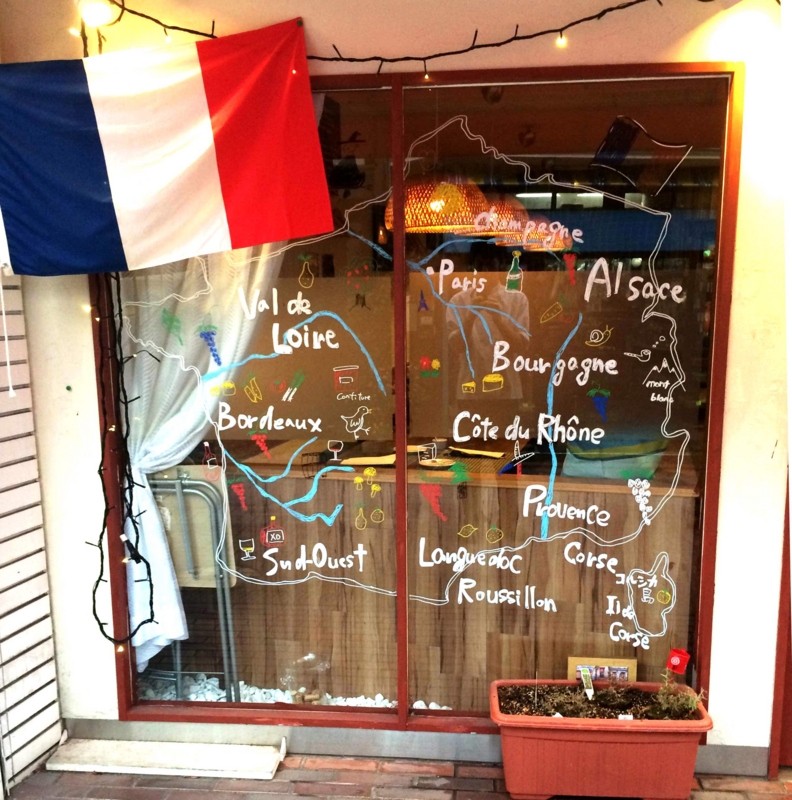 Champagne
Paris
Alsace
Val de
Loire
Bourgagne
mont
blanc
Confiture
Bordeaux
Côte du Rhône
Provence
XO
Sud-Ouest
Languedoc
Roussillon
Corse
コルシカ
島
Corse